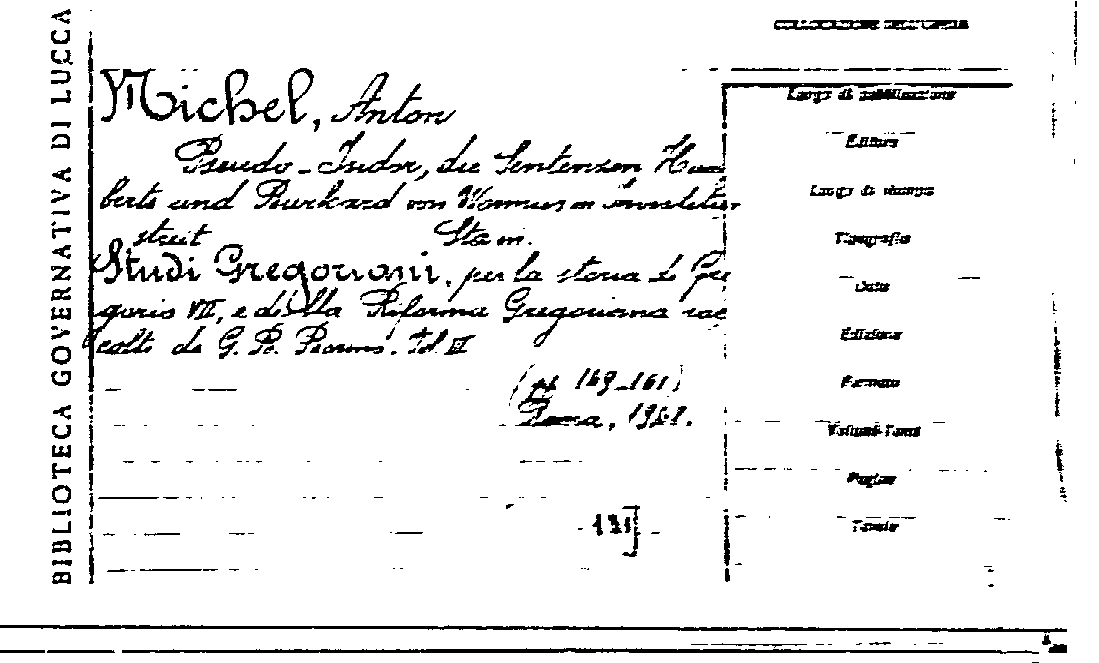 BIBLIOTECA GOVERNATIVA DI LUCCA
Michel, Anton
Pseudo-Isidor, die Sentenzen Hum
berts und Burkard von Worms im Investitur
streit
Studi Gregoriani, per la storia di Gre
gorio VII, e della Riforma Gregoriana rac
colti da G. B.
Roma,
Luogo di pubblicazione
Editore
Luogo di stampa
Tipografia
Data
Edizione
Formato
Volumi-Tomi
Pagine
Tavole